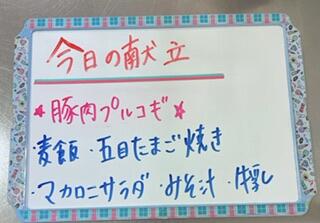 今日の献立
★豚肉プルコギ★
・麦飯・五目たまご焼き
・マカロニサラダ・みそ汁・牛乳